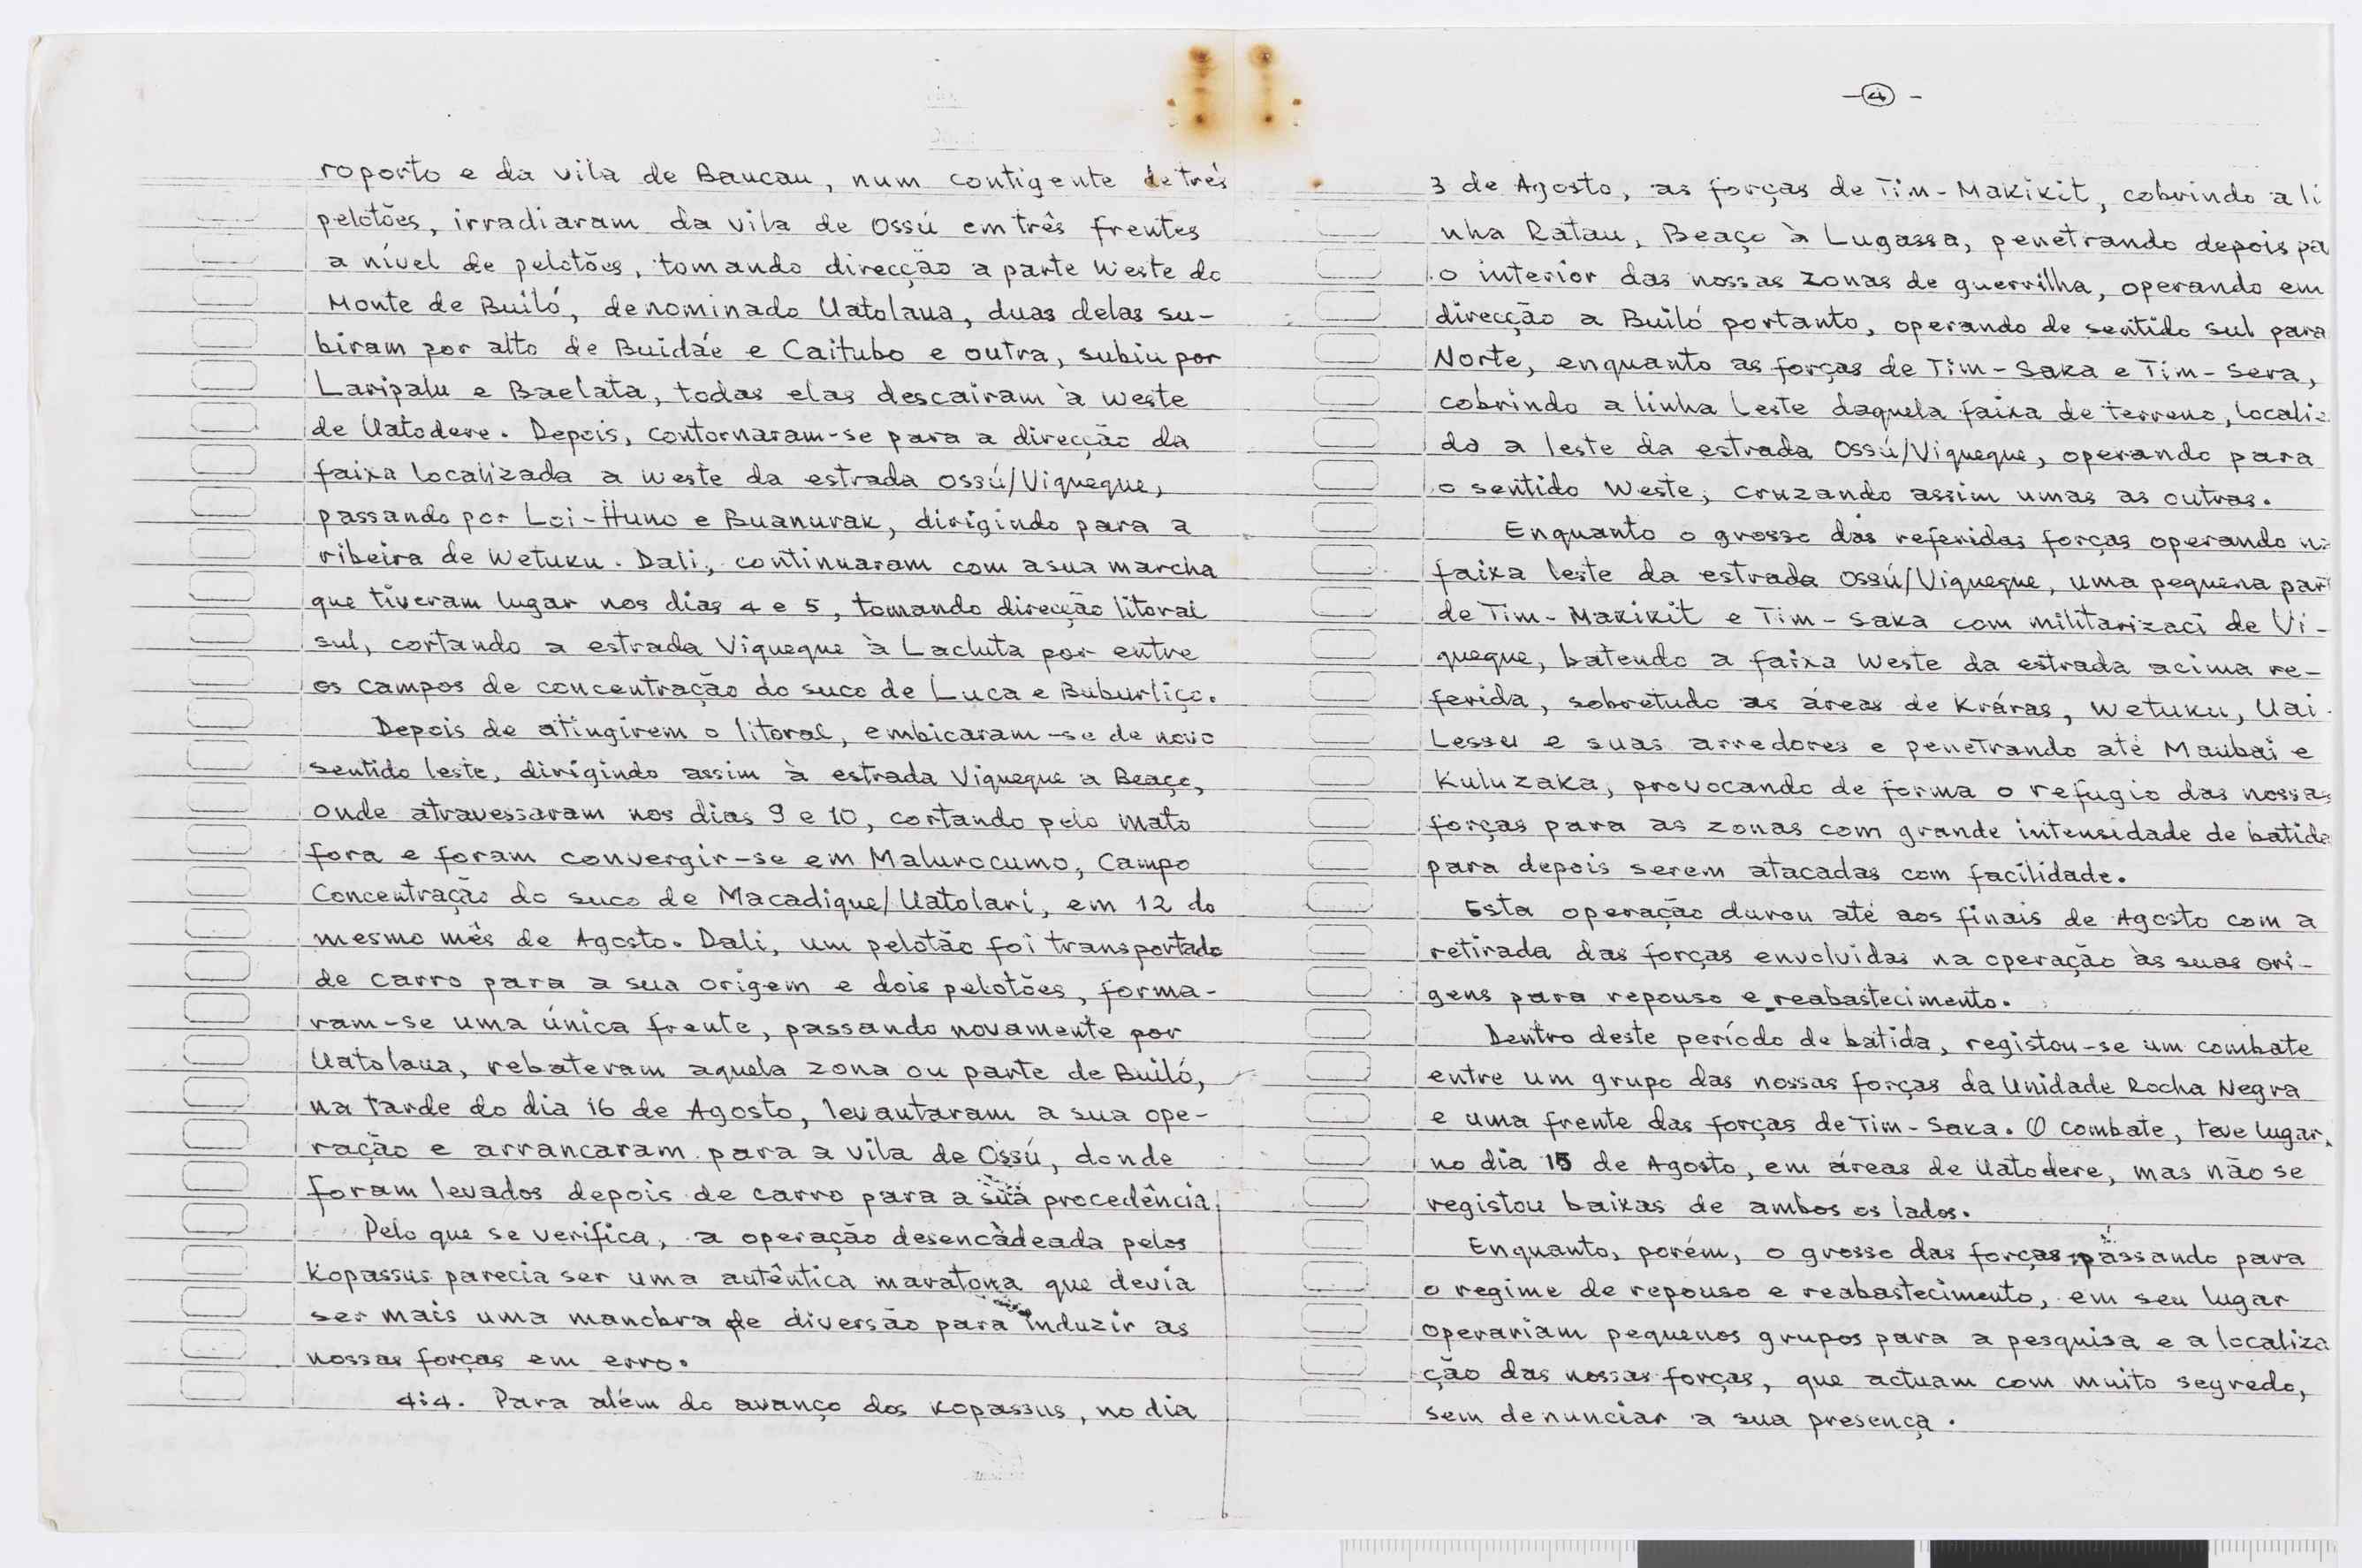 roporto e da vila de Baucau, num contigente de três
pelotões, irradiaram da vila de Ossú em três frentes
a nível de pelotões, tomando direcção a parte Weste do
Monte de Builó, denominado Uatolaua, duas delas su-
biram por alto de Buidáe e Caitubo e outra, subiu por
Laripalu e Baelata, todas elas descairam à weste
de Uatodere. Depois, contornaram-se para a direcção da
faixa localizada a weste da estrada ossú/Viqueque,
passando por Loi-Huno e Buanurak, dirigindo para a
ribeira de Wetuku. Dali, continuaram com a sua marcha
que tiveram lugar nos dias 4 e 5, tomando direcção litoral
sul, cortando a estrada Viqueque à Lacluta por entre
os campos de concentração do suco de Luca e Buburliço.
Depois de atingirem o litoral, embicaram-se de novo
sentido leste, dirigindo assim à estrada Viqueque a Beaço,
onde atravessaram nos dias 9 e 10, cortando pelo mato
fora e foram convergir-se em Malurocumo, Campo
Concentração do suco de Macadique/Uatolari, em 12 do
mesmo mês de Agosto. Dali, um pelotão foi transportado
de carro para a sua origem e dois pelotões, forma-
ram-se uma única frente, passando novamente por
Uatolaua, rebateram aquela zona ou parte de Builó,
na tarde do dia 16 de Agosto, levantaram a sua ope-
ração e arrancaram para a vila de Ossú, donde
foram levados depois de carro para a sua procedência.
Pelo que se verifica, a operação desencadeada pelos
Kopassus parecia ser uma autêntica maratona que devia
ser mais uma manobra de diversão para induzir as
nossas forças em erro.
4:4. Para além do avanço dos Kopassus, no dia
-4-
3 de Agosto, as forças de Tim-Makikit, cobrindo a li
nha Ratau, Beaço à Lugassa, penetrando depois pa
o interior das nossas zonas de guerrilha, operando em
direcção a Builó portanto, operando de sentido sul para
Norte, enquanto as forças de Tim-Saka e Tim-Sera,
cobrindo a linha Leste daquela faixa de terreno, localiz
do a leste da estrada Ossú/Viqueque, operando para
o sentido Weste, cruzando assim umas as outras.
Enquanto o grosso das referidas forças operando n
faixa leste da estrada Ossú/Viqueque, uma pequena par
de Tim-Makikit e Tim-Saka com militarizaci de Vi-
queque, batendo a faixa Weste da estrada acima re-
ferida, sobretudo as áreas de Kráras, Wetuku, Uai-
Lessu e suas arredores e penetrando até Maubai e
Kuluzaka, provocando de forma o refugio das nossas
forças para as zonas com grande intensidade de batida
para depois serem atacadas com facilidade.
Esta operação durou até aos finais de Agosto com a
retirada das forças envolvidas na operação às suas ori-
gens para repouso e reabastecimento.
Dentro deste período de batida, registou-se um combate
entre um grupo das nossas forças da Unidade Rocha Negra
e uma frente das forças de Tim-Saka. O combate, teve lugar,
no dia 15 de Agosto, em áreas de Uatodere, mas não se
registou baixas de ambos os lados.
Enquanto, porém, o grosso das forças, passando para
o regime de repouso e reabastecimento, em seu lugar
operariam pequenos grupos para a pesquisa e a localiza
ção das nossas forças, que actuam com muito segredo,
sem denunciar a sua presença.